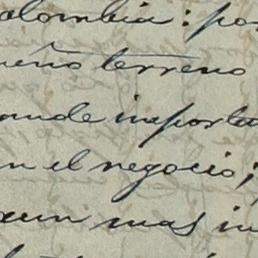 olombia: po
ueño terreno
ande importa
en el negocio;
aun mas in